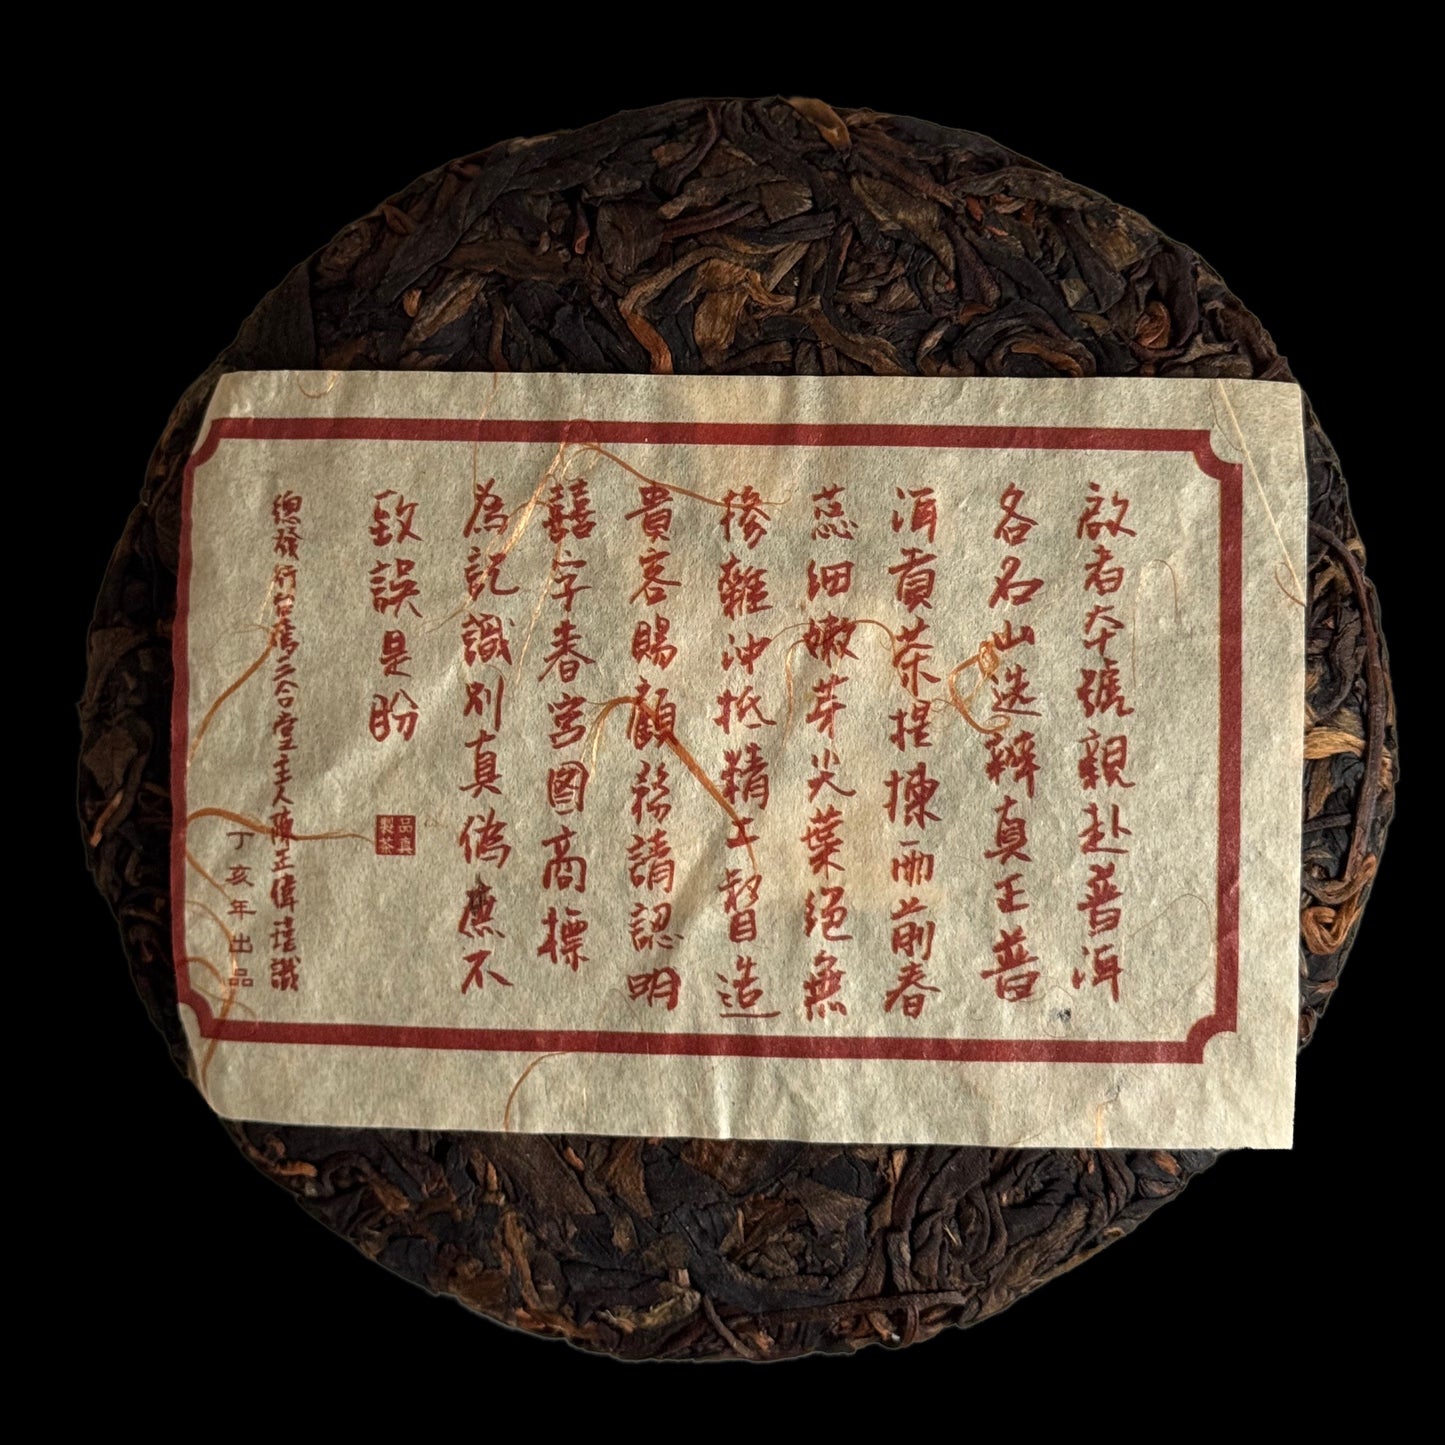 啟者本號親赴普洱
各名山选辨真正普
洱貢茶提揀雨前春
蕊細嫩芽尖葉絕無
摻雜沖抵精工督造
貴客賜顧務請認明
囍字春宮圖商標
為記識別真偽庶不
致誤是盼
品真製茶
總發行台灣三合堂主人陳正偉謹識
丁亥年出品